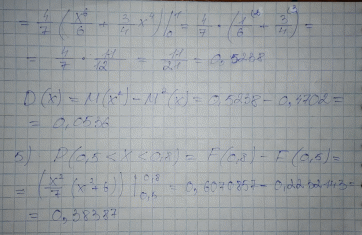 = 4/7 (x⁶/6 + 3/4 x⁴)|₀¹ = 4/7 · (1/6 + 3/4) =
= 4/7 · 11/12 = 11/21 = 0,5238
D(x) = M(x²) - M²(x) = 0,5238 - 0,4702 =
= 0,0536
5) P(0,5 < X < 0,8) = F(0,8) - F(0,5) =
= (x²/7 (x²+6)) |₀,₅⁰,⁸ = 0,6070857 - 0,2232143 =
= 0,38387